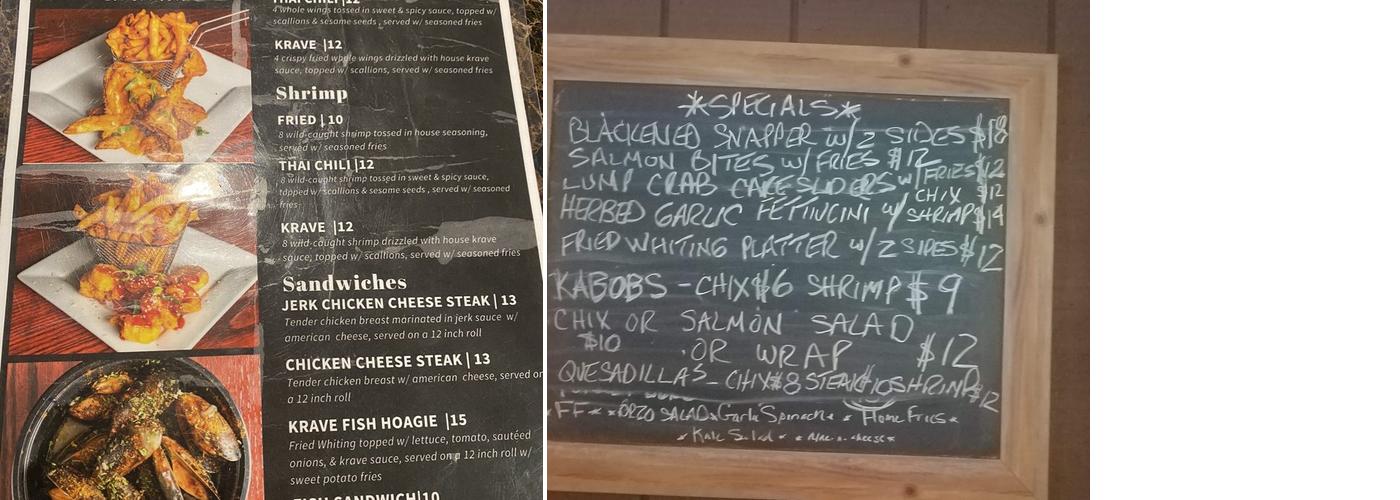 THAI CHILI |12
4 whole wings tossed in sweet & spicy sauce, topped w/
scallions & sesame seeds , served w/ seasoned fries
KRAVE |12
4 crispy fried whole wings drizzled with house krave
sauce, topped w/ scallions, served w/ seasoned fries
Shrimp
FRIED | 10
8 wild-caught shrimp tossed in house seasoning,
served w/ seasoned fries
THAI CHILI |12
8 wild-caught shrimp tossed w/ sweet & spicy sauce,
topped w/ scallions & sesame seeds , served w/ seasoned
fries
KRAVE |12
8 wild-caught shrimp drizzled with house krave
sauce, topped w/ scallions, served w/ seasoned fries
Sandwiches
JERK CHICKEN CHEESE STEAK | 13
Tender chicken breast marinated in jerk sauce w/
american cheese, served on a 12 inch roll
CHICKEN CHEESE STEAK | 13
Tender chicken breast w/ american cheese, served on
a 12 inch roll
KRAVE FISH HOAGIE |15
Fried Whiting topped w/ lettuce, tomato, sautéed
onions, & krave sauce, served on a 12 inch roll w/
sweet potato fries
FISH SANDWICH|10
*SPECIALS*
BLACKENED SNAPPER w/ 2 SIDES $18
SALMON BITES w/ FRIES $12
LUMP CRAB CAKE SLIDERS w/ FRIES $12
HERBED GARLIC FETTIUCINI w/ CHIX $12
SHRIMP $14
FRIED WHITING PLATTER w/ 2 SIDES $12
KABOBS - CHIX $6 SHRIMP $9
CHIX OR SALMON SALAD
$10 OR WRAP $12
QUESADILLAS - CHIX $8 STEAK $10 SHRIMP $12
*FF* *ORZO SALAD* Garlic Spinach * * Home Fries *
* Kale Salad * * Mac-n-cheese *